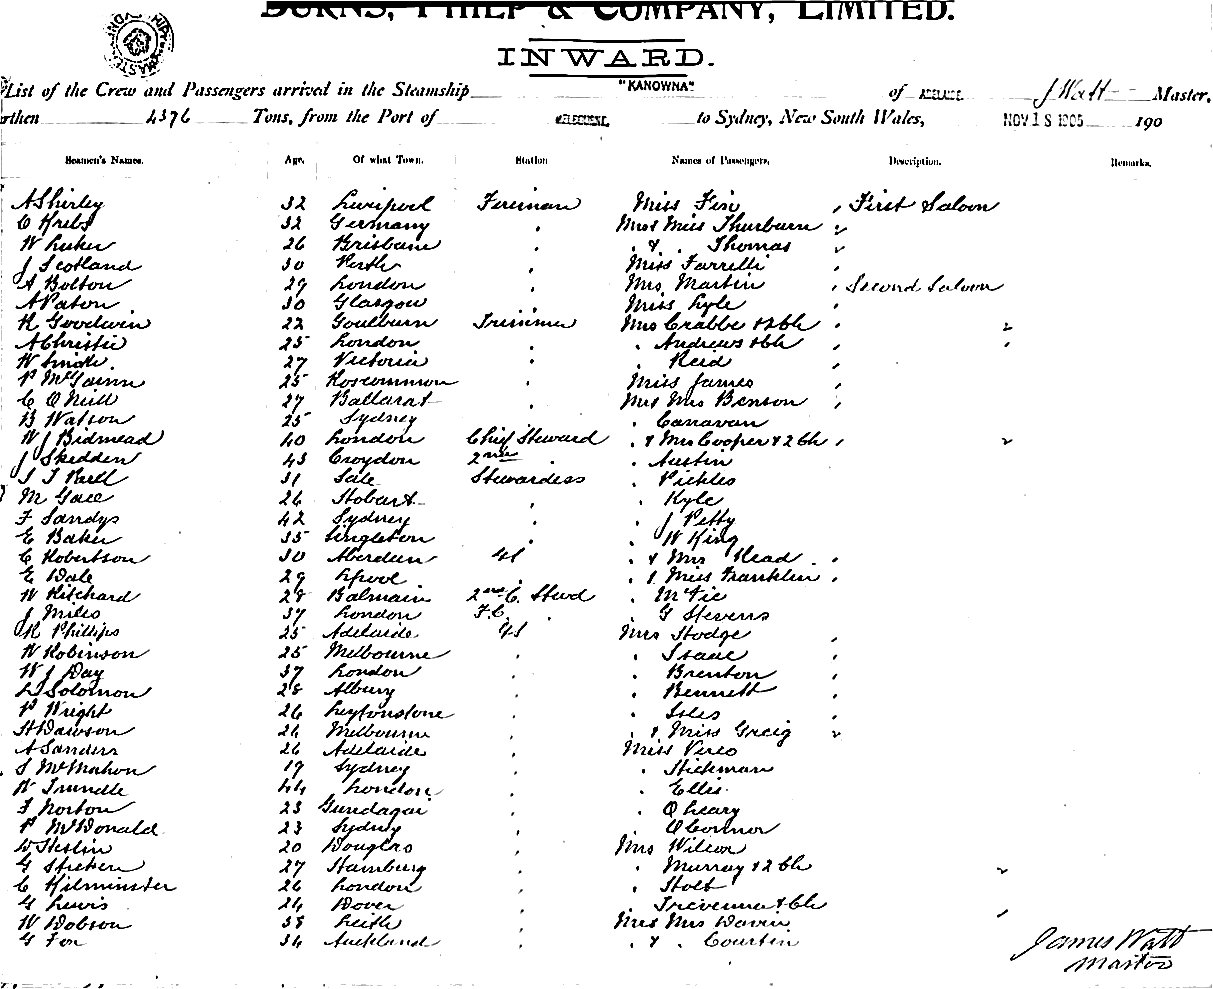 BURNS, PHILP & COMPANY, LIMITED.
INWARD.
List of the Crew and Passengers arrived in the Steamship "KANOWNA" of ADELAIDE J Watt Master,
rthen 4376 Tons, from the Port of MELBOURNE to Sydney, New South Wales, NOV 18 1905 190
Seamen's Names. Age. Of what Town. Station Names of Passengers. Description. Remarks.
A Shirley 32 Liverpool Fireman Miss Fisn , First Saloon
C Krebs 32 Germany " Mr & Miss Thurburn
W Luker 26 Brisbane " " & " Thomas
J Scotland 30 Perth " Miss Farrelli
A Bolton 29 London " Mrs Martin , Second Saloon
A Paton 30 Glasgow " Miss Lyle
R Goodwin 22 Goulburn Trimmer Mrs Crabbe & 2 Ch 2
A Christie 25 London " " Andrews & Ch
W Smith 27 Victoria " " Reid
P McGainn 25 Roscommon " Miss James
C O'Neill 27 Ballarat " Mr & Mrs Benson
B Watson 25 Sydney " " Canavan
W J Bidmead 40 London Chief Steward " & Mrs Cooper & 2 Ch 2
J Skedden 43 Croydon 2nd " " Austin
J T Kell 31 Sale Stewardess " Pickles
M Gace 26 Hobart " " Kyle
F Sandys 42 Sydney " " J Petty
E Baker 35 Singleton " " W King
C Robertson 30 Aberdeen " & Mrs Head
E Dale 29 L'pool " " & Miss Franklin
W Ritchard 28 Balmain 2nd C. Stwd " McFie
J Miles 37 London F.C. " " G Stevens
R Phillips 25 Adelaide Mrs Hodge
W Robinson 25 Melbourne " " Isaac
W J Day 37 London " " Brenton
L Solomon 28 Albury " " Bennett
P Wright 26 Leytonstone " " Isles
H Dawson 26 Melbourne " " & Miss Greig
A Sanders 26 Adelaide " Miss Verco
S McMahon 19 Sydney " " Hickman
W Trundle 44 London " " Ellis
F Norton 23 Gundagai " " O'Leary
P McDonald 23 Sydney " " O'Connor
W Heslin 20 Douglas " Mrs Wilcox
G Stieken 27 Hamburg " " Murray & 2 Ch 2
C Kilminster 26 London " " Holt
G Lewis 24 Dover " " Trevenna & Ch
W Dobson 38 Leith " Mr & Mrs Davis
G Fox 34 Auckland " " & " Courtin
James Watt
Master